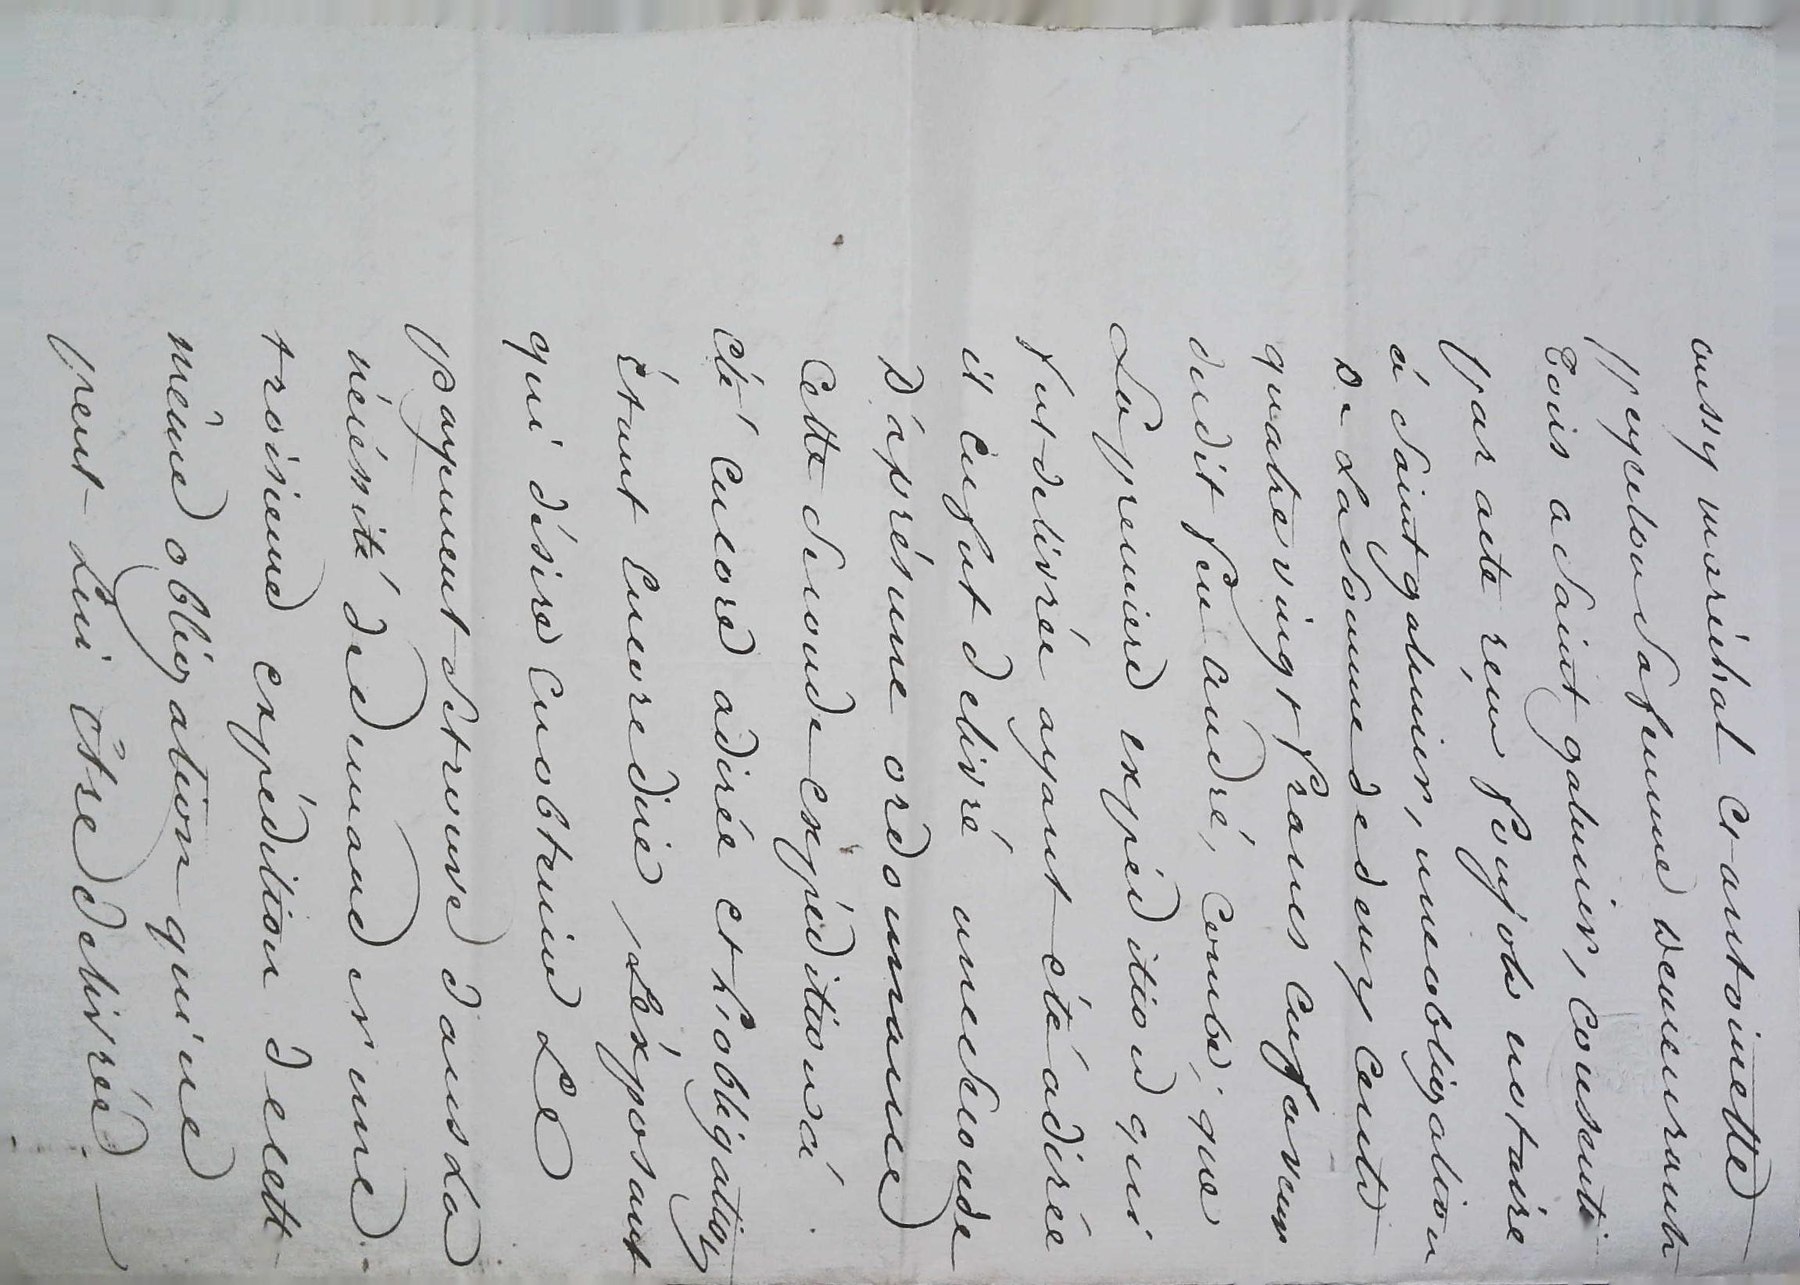 aussy maréchal et antoinette
peyrebou sa femme demeurants
tois a saint gatmier, consenti
par acte reçu Pujols notaire
à Saint gatmier, une obligation
De La Somme de deux cents
quatre vingt francs en faveur
dudit feu andré, Combe; que
La premiere expédition qui
fut délivrée ayant été adirée
il en fut délivré une seconde
D'après une ordonnance
Cette seconde expédition a
été encore adirée et L'obligation
étant encore due, L'éxposant
qui désire en obtenir Le
payement se trouve dans La
nécéssité de demander une
troisieme expédition de cette
même obligation qui ne
peut Lui être délivrée